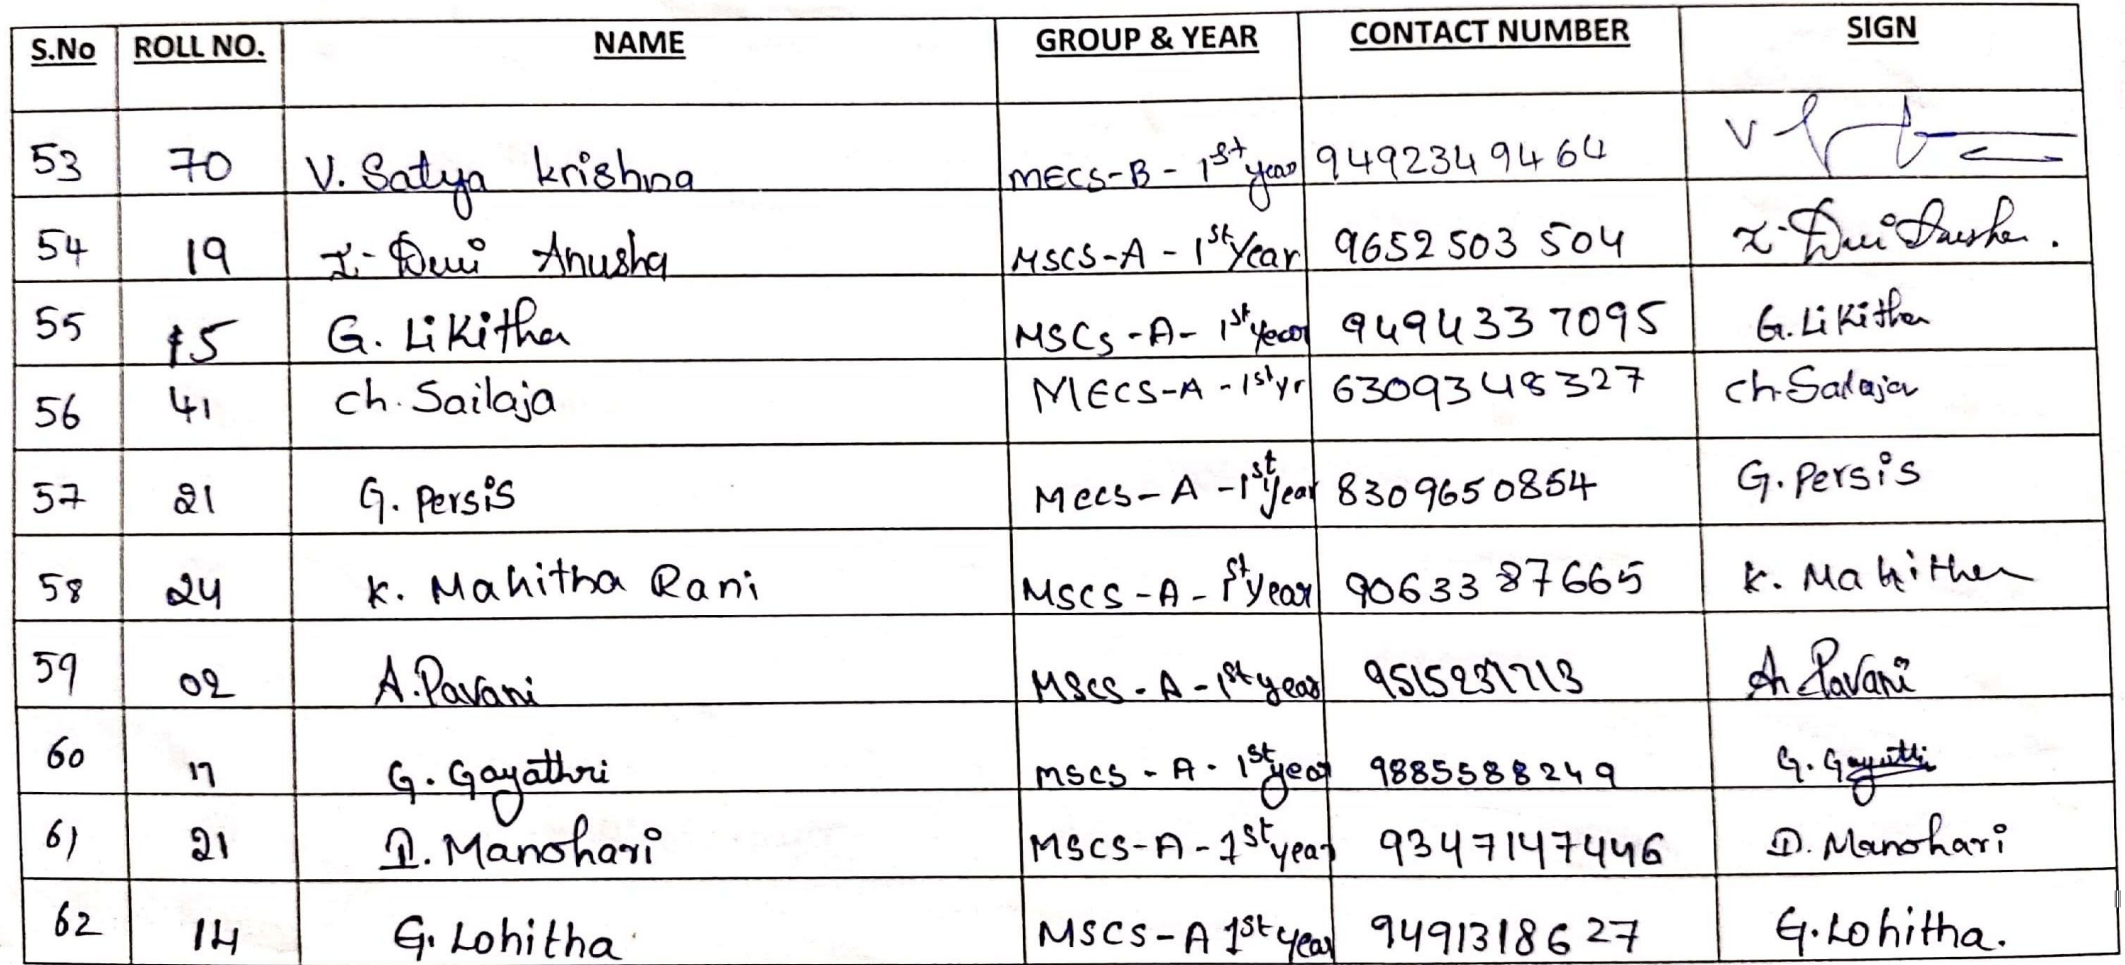 S.No ROLL NO. NAME GROUP & YEAR CONTACT NUMBER SIGN
53 70 V. Satya krishna MECS-B - 1st year 9492349464 V
54 19 Z. Devi Anusha MSCS-A - 1st Year 9652503504 Z. Devi Anusha.
55 15 G. Likitha MSCs -A- 1st year 9494337095 G. Likitha
56 41 ch. Sailaja MECS-A - 1st yr 6309348327 ch. Sailaja
57 21 G. persis Mecs- A -1st year 8309650854 G. Persis
58 24 k. Mahitha Rani MSCS -A - 1st year 9063387665 k. Mahitha
59 02 A.Pavani MSCS - A - 1st year 9515231713 A. Pavani
60 17 G. Gayathri MSCS - A - 1st year 9885588249 G. Gayathri
61 21 D. Manohari MSCS-A - 1st year 9347147446 D. Manohari
62 14 G. Lohitha MSCS-A 1st year 9491318627 G. Lohitha.